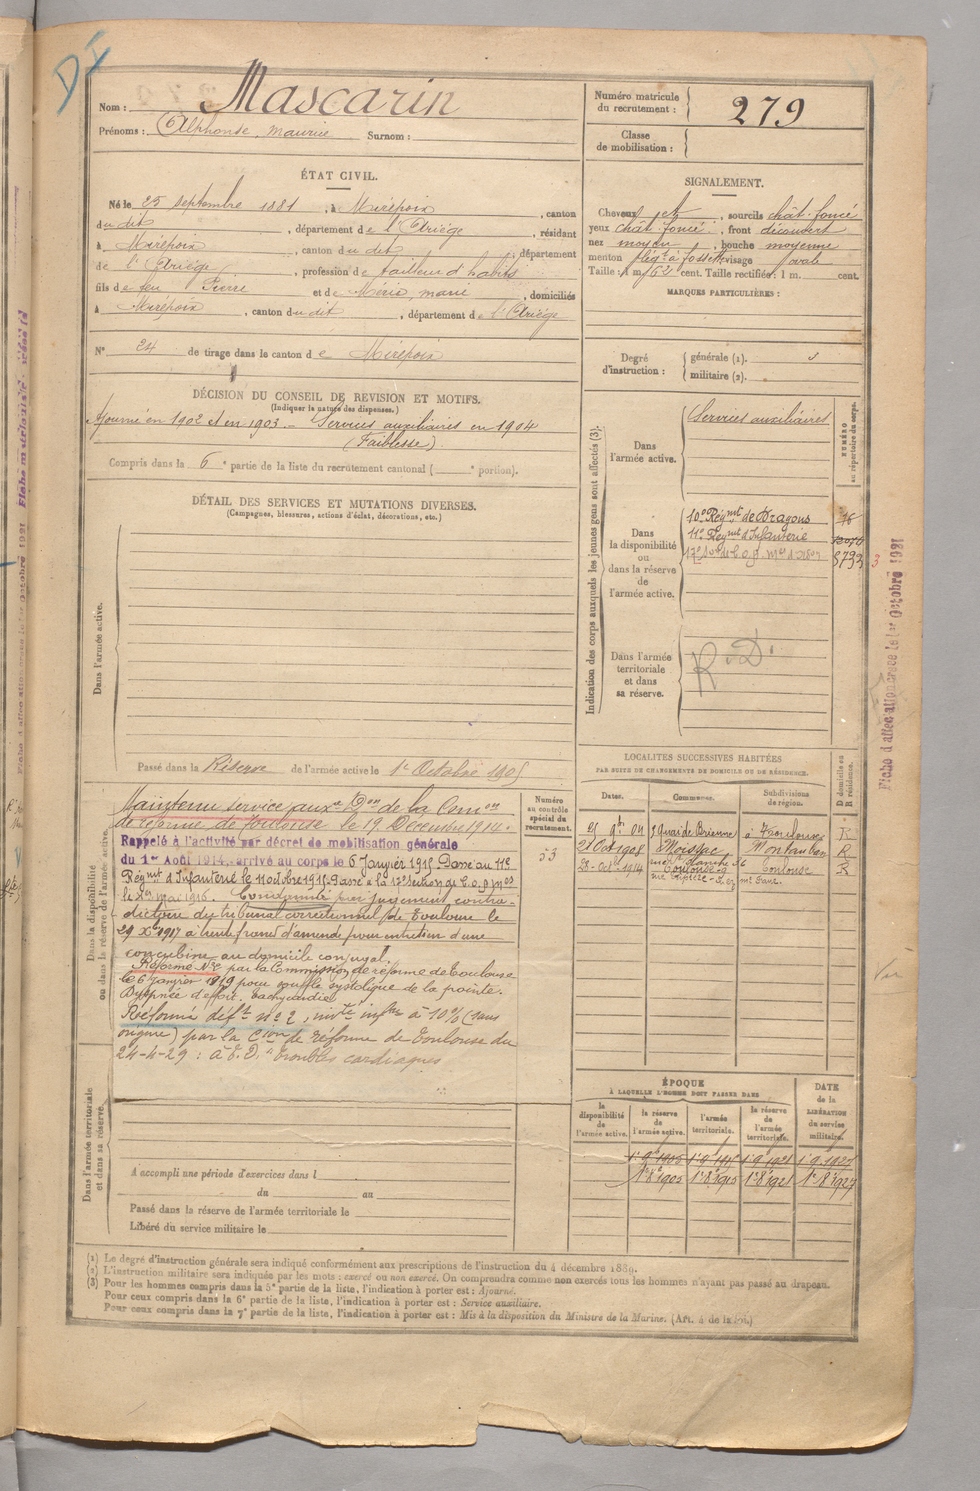 DI
Nom : Mascarin
Prénoms : Alphonse, Maurice Surnom :
Numéro matricule du recrutement : 279
Classe de mobilisation :
ÉTAT CIVIL.
Né le 25 Septembre 1881, à Mirepoix, canton
du dit, département de l'Ariège, résidant
à Mirepoix, canton du dit, département
de l'Ariège, profession de tailleur d'habits
fils de feu Pierre et de Méric, marie, domiciliés
à Mirepoix, canton du dit, département de l'Ariège
N° 24 de tirage dans le canton de Mirepoix
SIGNALEMENT.
Cheveux et, sourcils chât. foncé
yeux chât. foncé, front découvert
nez moyen, bouche moyenne
menton à fossette visage ovale
Taille : 1 m. 62 cent. Taille rectifiée : 1 m. cent.
MARQUES PARTICULIÈRES :
Degré d'instruction :
générale (1). 3
militaire (2).
DÉCISION DU CONSEIL DE REVISION ET MOTIFS.
(Indiquer la nature des dispenses.)
Ajourné en 1902 et en 1903 _ Services auxiliaires en 1904
(Faiblesse)
Compris dans la 6e partie de la liste du recrutement cantonal ( e portion).
DÉTAIL DES SERVICES ET MUTATIONS DIVERSES.
(Campagnes, blessures, actions d'éclat, décorations, etc.)
Dans l'armée active.
Passé dans la Réserve de l'armée active le 1er Octobre 1905
Indication des corps auxquels les jeunes gens sont affectés (3).
NUMÉRO au répertoire du corps.
Dans l'armée active.
Services auxiliaires
Dans la disponibilité ou dans la réserve de l'armée active.
10e Régmt de Dragons 16
11e Régmt d'Infanterie
8793
3
Dans l'armée territoriale et dans sa réserve.
R. D.
Fiche d'affectation créée le 1er Octobre 1921
LOCALITÉS SUCCESSIVES HABITÉES
PAR SUITE DE CHANGEMENTS DE DOMICILE OU DE RÉSIDENCE.
Dates. Commune. Subdivisions de région. D domicile ou R résidence.
25 9bre 04 9 Quai de Brienne à Toulouse R
21 Oct 1908 Moissac Montauban R
28 Oct 1914 Toulouse Toulouse R
Dans la disponibilité ou dans la réserve de l'armée active.
Numéro au contrôle spécial du recrutement.
53
Maintenu service auxre Don de la Comon
de réforme de Toulouse le 19 Décembre 1914.
Rappelé à l'activité par décret de mobilisation générale
du 1er Août 1914, arrivé au corps le 6 Janvier 1915. Passé au 11e
Régmt d'Infanterie le 11 octobre 1915. Passé à la 17e Section de C.O.A. Mos
le mai 1916. Condamné par jugement contra-
dictoire du tribunal correctionnel de Toulouse le
29 Xe 1917 à trente francs d'amende pour entretien d'une
concubine au domicile conjugal.
Réformé N°2 par la Commission de réforme de Toulouse
le 6 janvier 1919 pour souffle systolique de la pointe.
Dyspnée d'effort. Tachycardie.
Réformé déft n° 2, invté infre à 10% (sans
origine) par la Cion de réforme de Toulouse du
24-4-29 : à E.D. "Troubles cardiaques
Dans l'armée territoriale et dans sa réserve.
A accompli une période d'exercices dans l
du au
Passé dans la réserve de l'armée territoriale le
Libéré du service militaire le
ÉPOQUE
À LAQUELLE L'HOMME DOIT PASSER DANS
la disponibilité de l'armée active. la réserve de l'armée active. l'armée territoriale. la réserve de l'armée territoriale.
DATE de la LIBÉRATION du service militaire.
1er 8e 1905 1er 8e 1915 1er 8e 1921 1er 8e 1927
(1) Le degré d'instruction générale sera indiqué conformément aux prescriptions de l'instruction du 4 décembre 1889.
(2) L'instruction militaire sera indiquée par les mots : exercé ou non exercé. On comprendra comme non exercés tous les hommes n'ayant pas passé au drapeau.
(3) Pour les hommes compris dans la 5e partie de la liste, l'indication à porter est : Ajourné.
Pour ceux compris dans la 6e partie de la liste, l'indication à porter est : Service auxiliaire.
Pour ceux compris dans la 7e partie de la liste, l'indication à porter est : Mis à la disposition du Ministre de la Marine. (Art. 4 de la loi.)